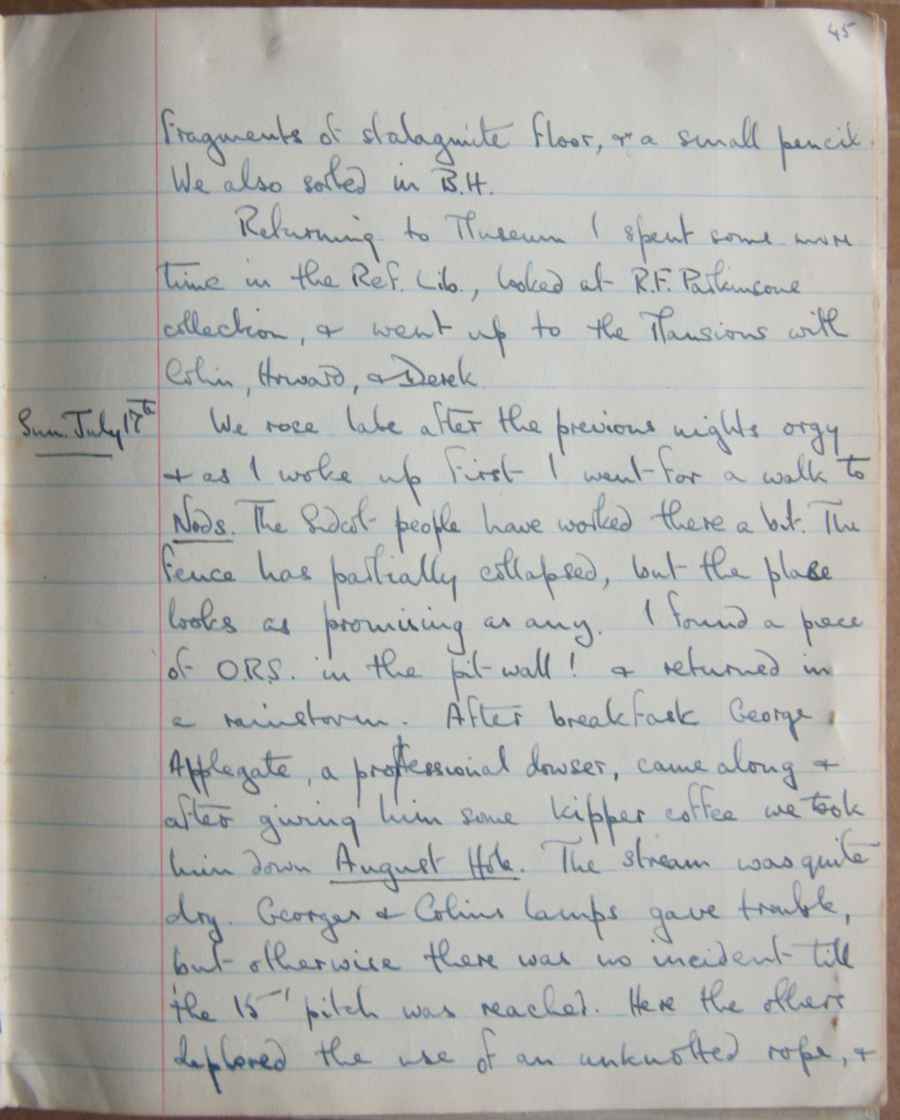 45
fragments of stalagmite floor, & a small pencil.
We also sorted in B.H.
Returning to Museum I spent some more
time in the Ref. Lib., looked at R.F. Parkinsons
collection, & went up to the Mansions with
Colin, Howard, & Derek
Sun. July 17th We rose late after the previous nights orgy
& as I woke up first I went for a walk to
Nods. The Sidcot people have worked there a bit. The
fence has partially collapsed, but the place
looks as promising as any. I found a piece
of O.R.S. in the pit wall! & returned in
a rainstorm. After breakfast George
Applegate, a professional dowser, came along &
after giving him some kipper coffee we took
him down August Hole. The stream was quite
dry. Georges & Colins lamps gave trouble,
but otherwise there was no incident till
the 15' pitch was reached. Here the others
deplored the use of an unknotted rope, &